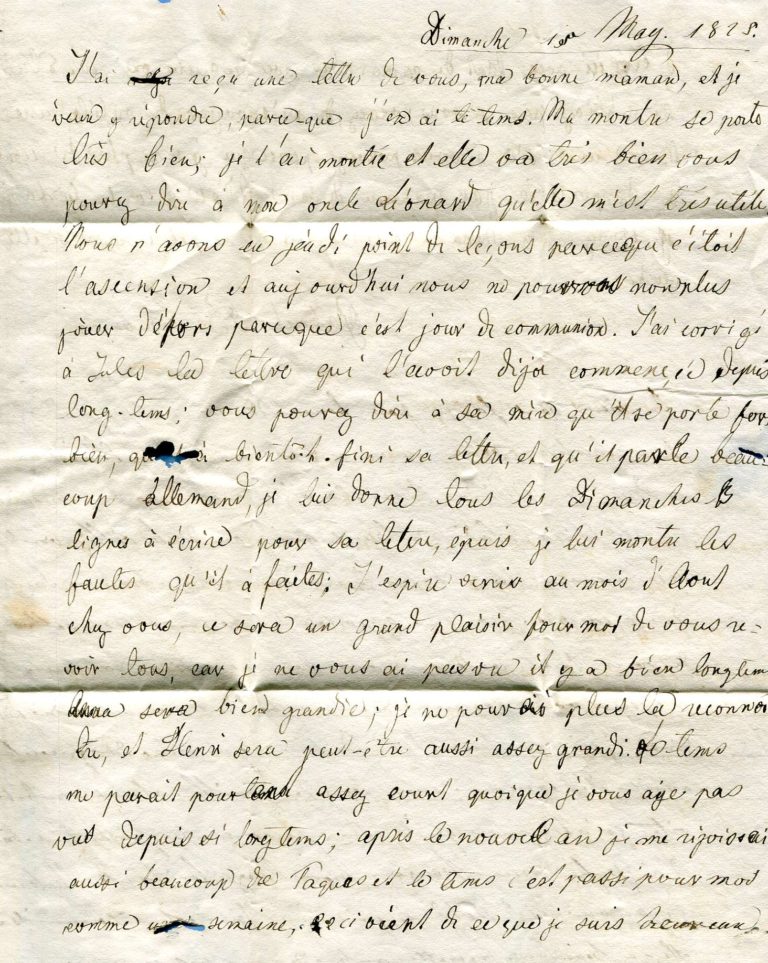 Dimanche 1er May. 1825.
J'ai reçu une lettre de vous, ma bonne maman, et je
veux y répondre, parce-que j'en ai le tems. Ma montre se porte
très bien; je l'ai montée et elle va très bien vous
pouvez dire à mon oncle Léonard qu'elle m'est très utile
Nous n'avons eu jeudi point de leçons parceque c'étoit
l'ascension et aujourd'hui nous ne pouvons nonplus
jouer déhors parceque c'est jour de communion. J'ai corrigé
à Jules la lettre qui l'avoit déja commencée depuis
long-tems; vous pouvez dire à sa mère qu'il se porte fort
bien, à bientôt fini sa lettre, et qu'il parle beau-
coup Allemand, je lui donne tous les Dimanches
lignes à écrire pour sa lettre, épuis je lui montre les
fautes qu'il à faites: J'espère venir au mois d'Aout
chez vous, ce sera un grand plaisir pour moi de vous re-
voir tous, car je ne vous ai pas vu il y a bien longtems
Anna sera bien grandie; je ne pourai plus la reconnoi
tre, et Henri sera peut-être aussi assez grandi. Le tems
me parait pourtant assez court quoique je vous aye pas
vus depuis si longtems; après le nouvel an je me rejoissai
aussi beaucoup de Paques et le tems c'est passé pour moi
comme une semaine, ceci vient de ce que je suis heureux.